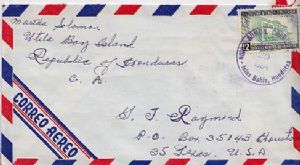 Martha Solomon
Utila Bay Island
Republic of Honduras
C. A.
CORREO AEREO
2
Islas Bahia, Honduras
G. T. Raymond
P. O. Box 35043 Houston
35 Texas, U.S.A.